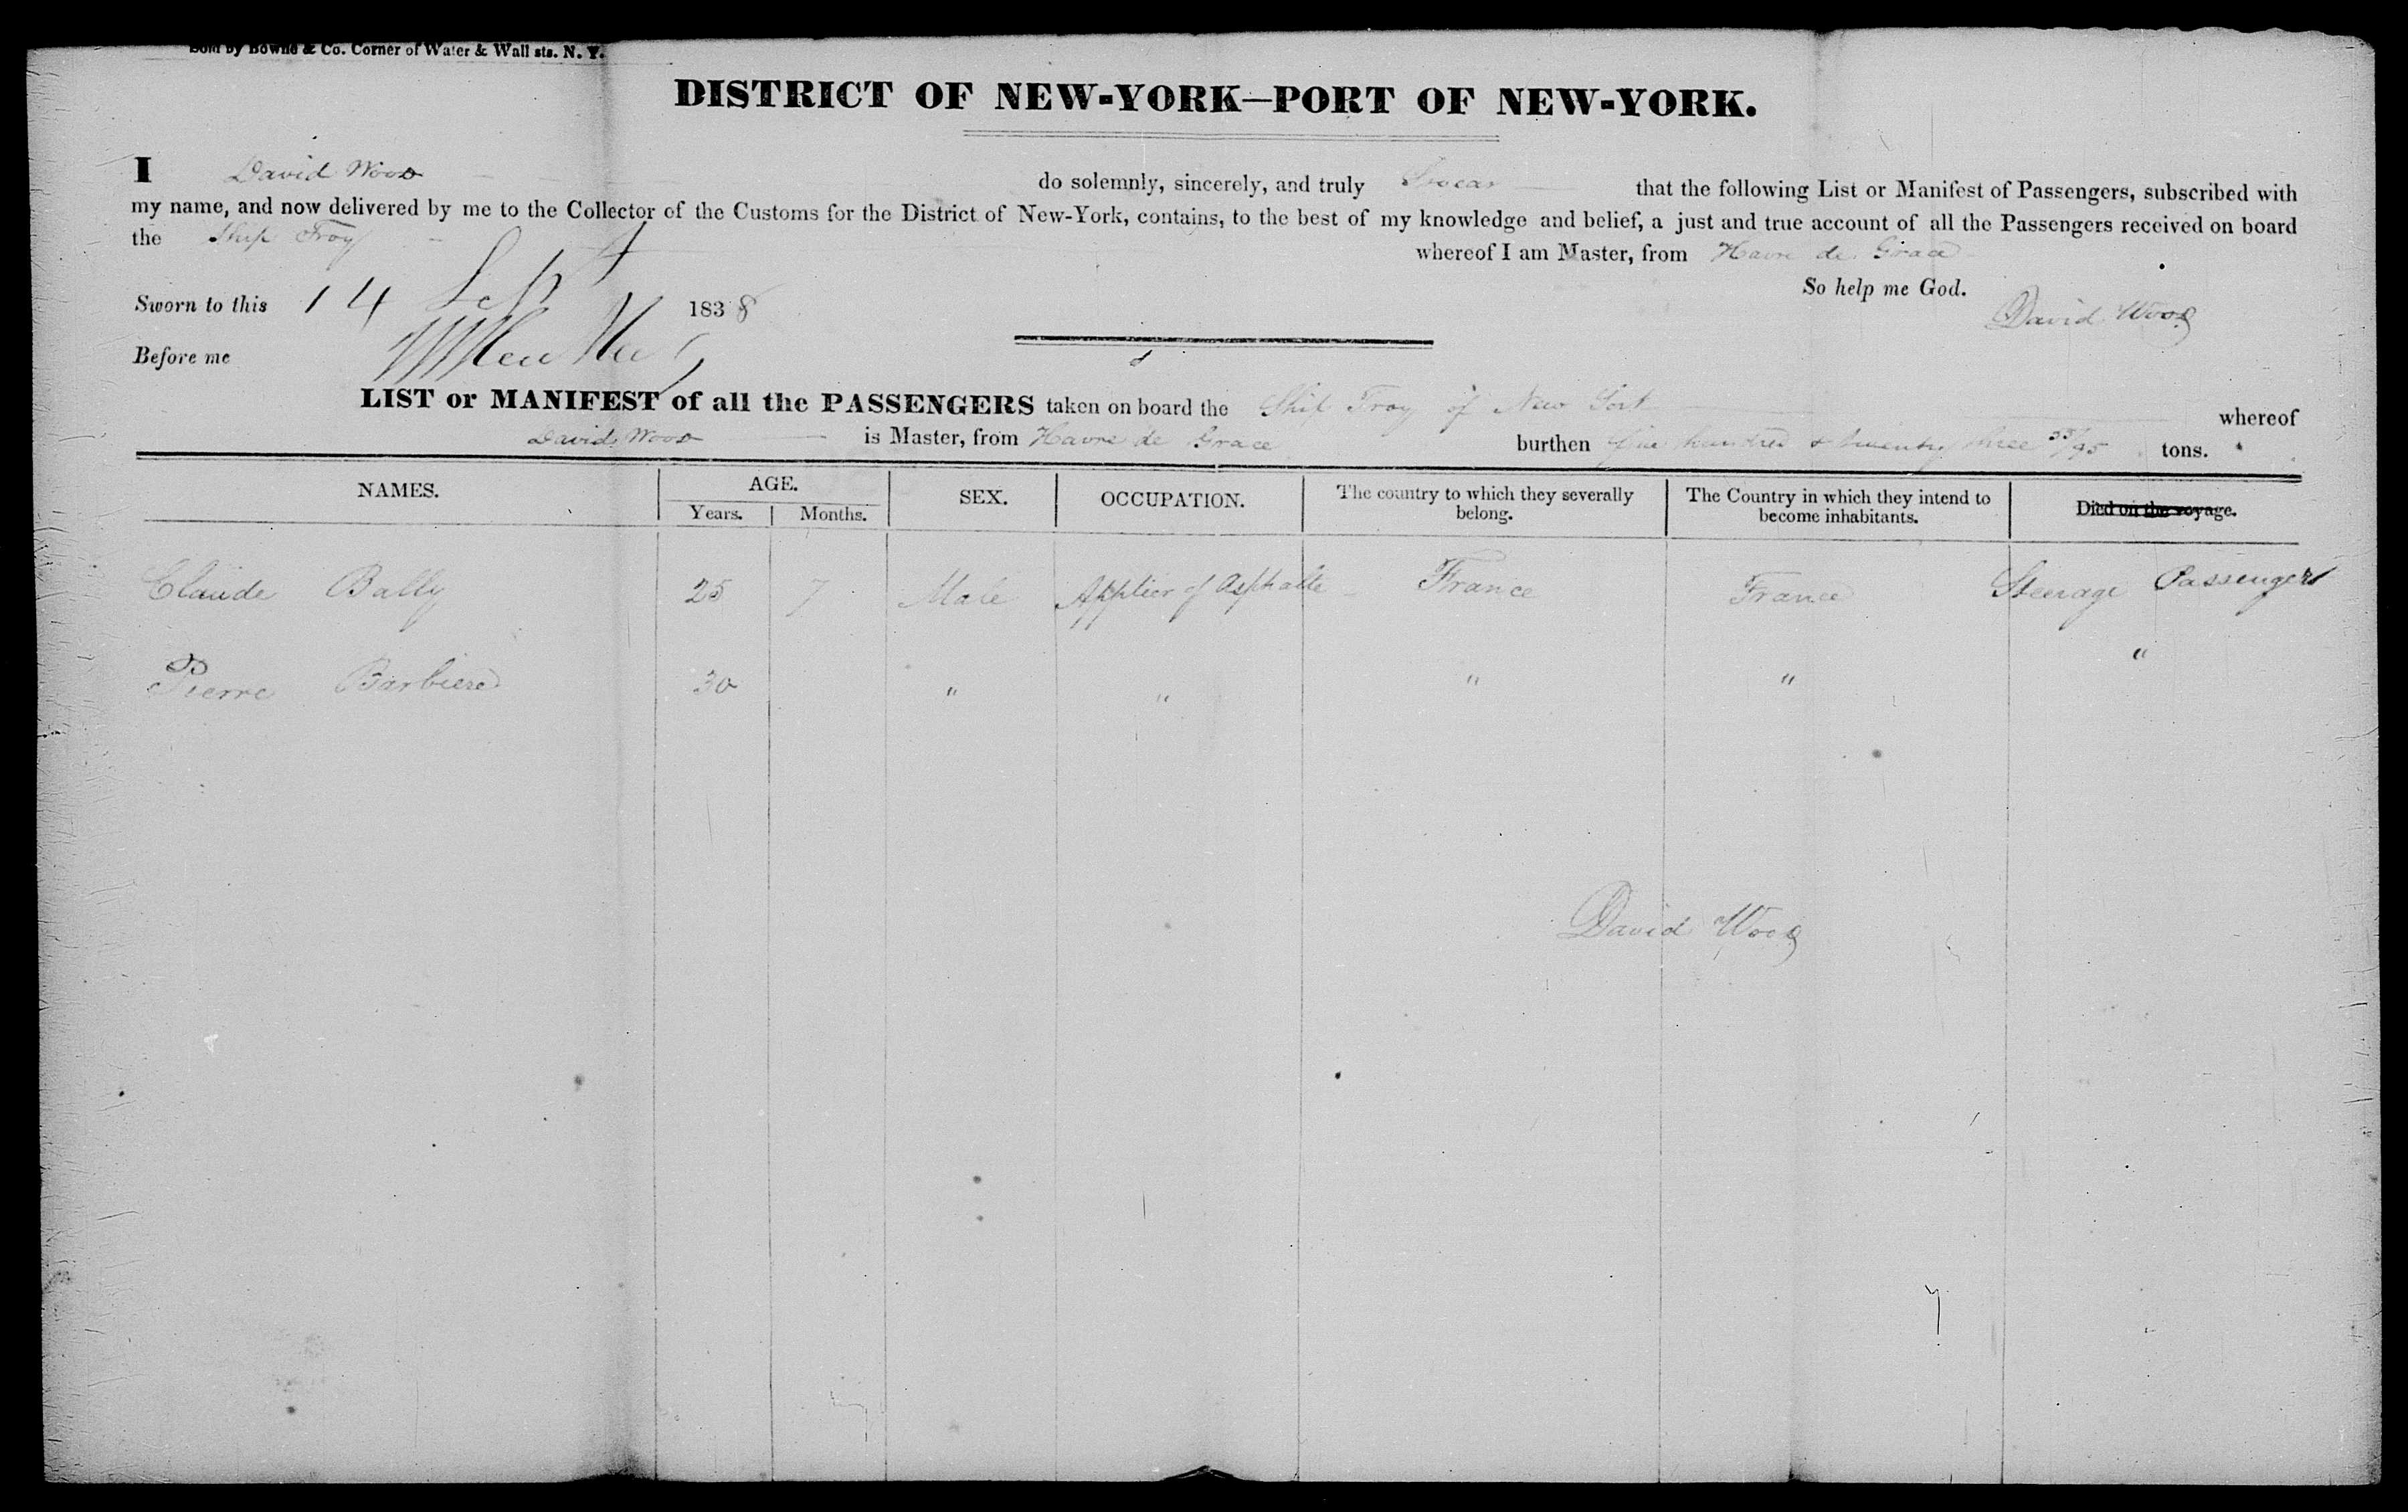 Sold by Bowne & Co. Corner of Water & Wall sts. N. Y.
DISTRICT OF NEW-YORK—PORT OF NEW-YORK.
I David Wood do solemnly, sincerely, and truly Swear that the following List or Manifest of Passengers, subscribed with
my name, and now delivered by me to the Collector of the Customs for the District of New-York, contains, to the best of my knowledge and belief, a just and true account of all the Passengers received on board
the Ship Troy whereof I am Master, from Havre de Grace
So help me God.
Sworn to this 14 Sept 1838
David Wood
Before me
LIST or MANIFEST of all the PASSENGERS taken on board the Ship Troy of New York whereof
David Wood is Master, from Havre de Grace burthen five hundred & twenty three 55/95 tons.
NAMES. AGE. SEX. OCCUPATION. The country to which they severally belong. The Country in which they intend to become inhabitants. Died on the voyage.
Years. Months.
Claude Bally 25 7 Male Applier of Asphalte France France Steerage Passengers
Pierre Barbiere 30 " " " " "
David Wood